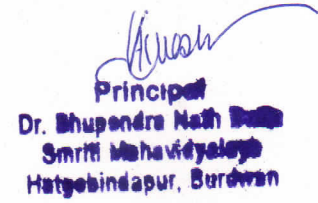 Principal
Dr. Bhupendra Nath
Smriti Mahavidyalaya
Hatgobindapur, Burdwan